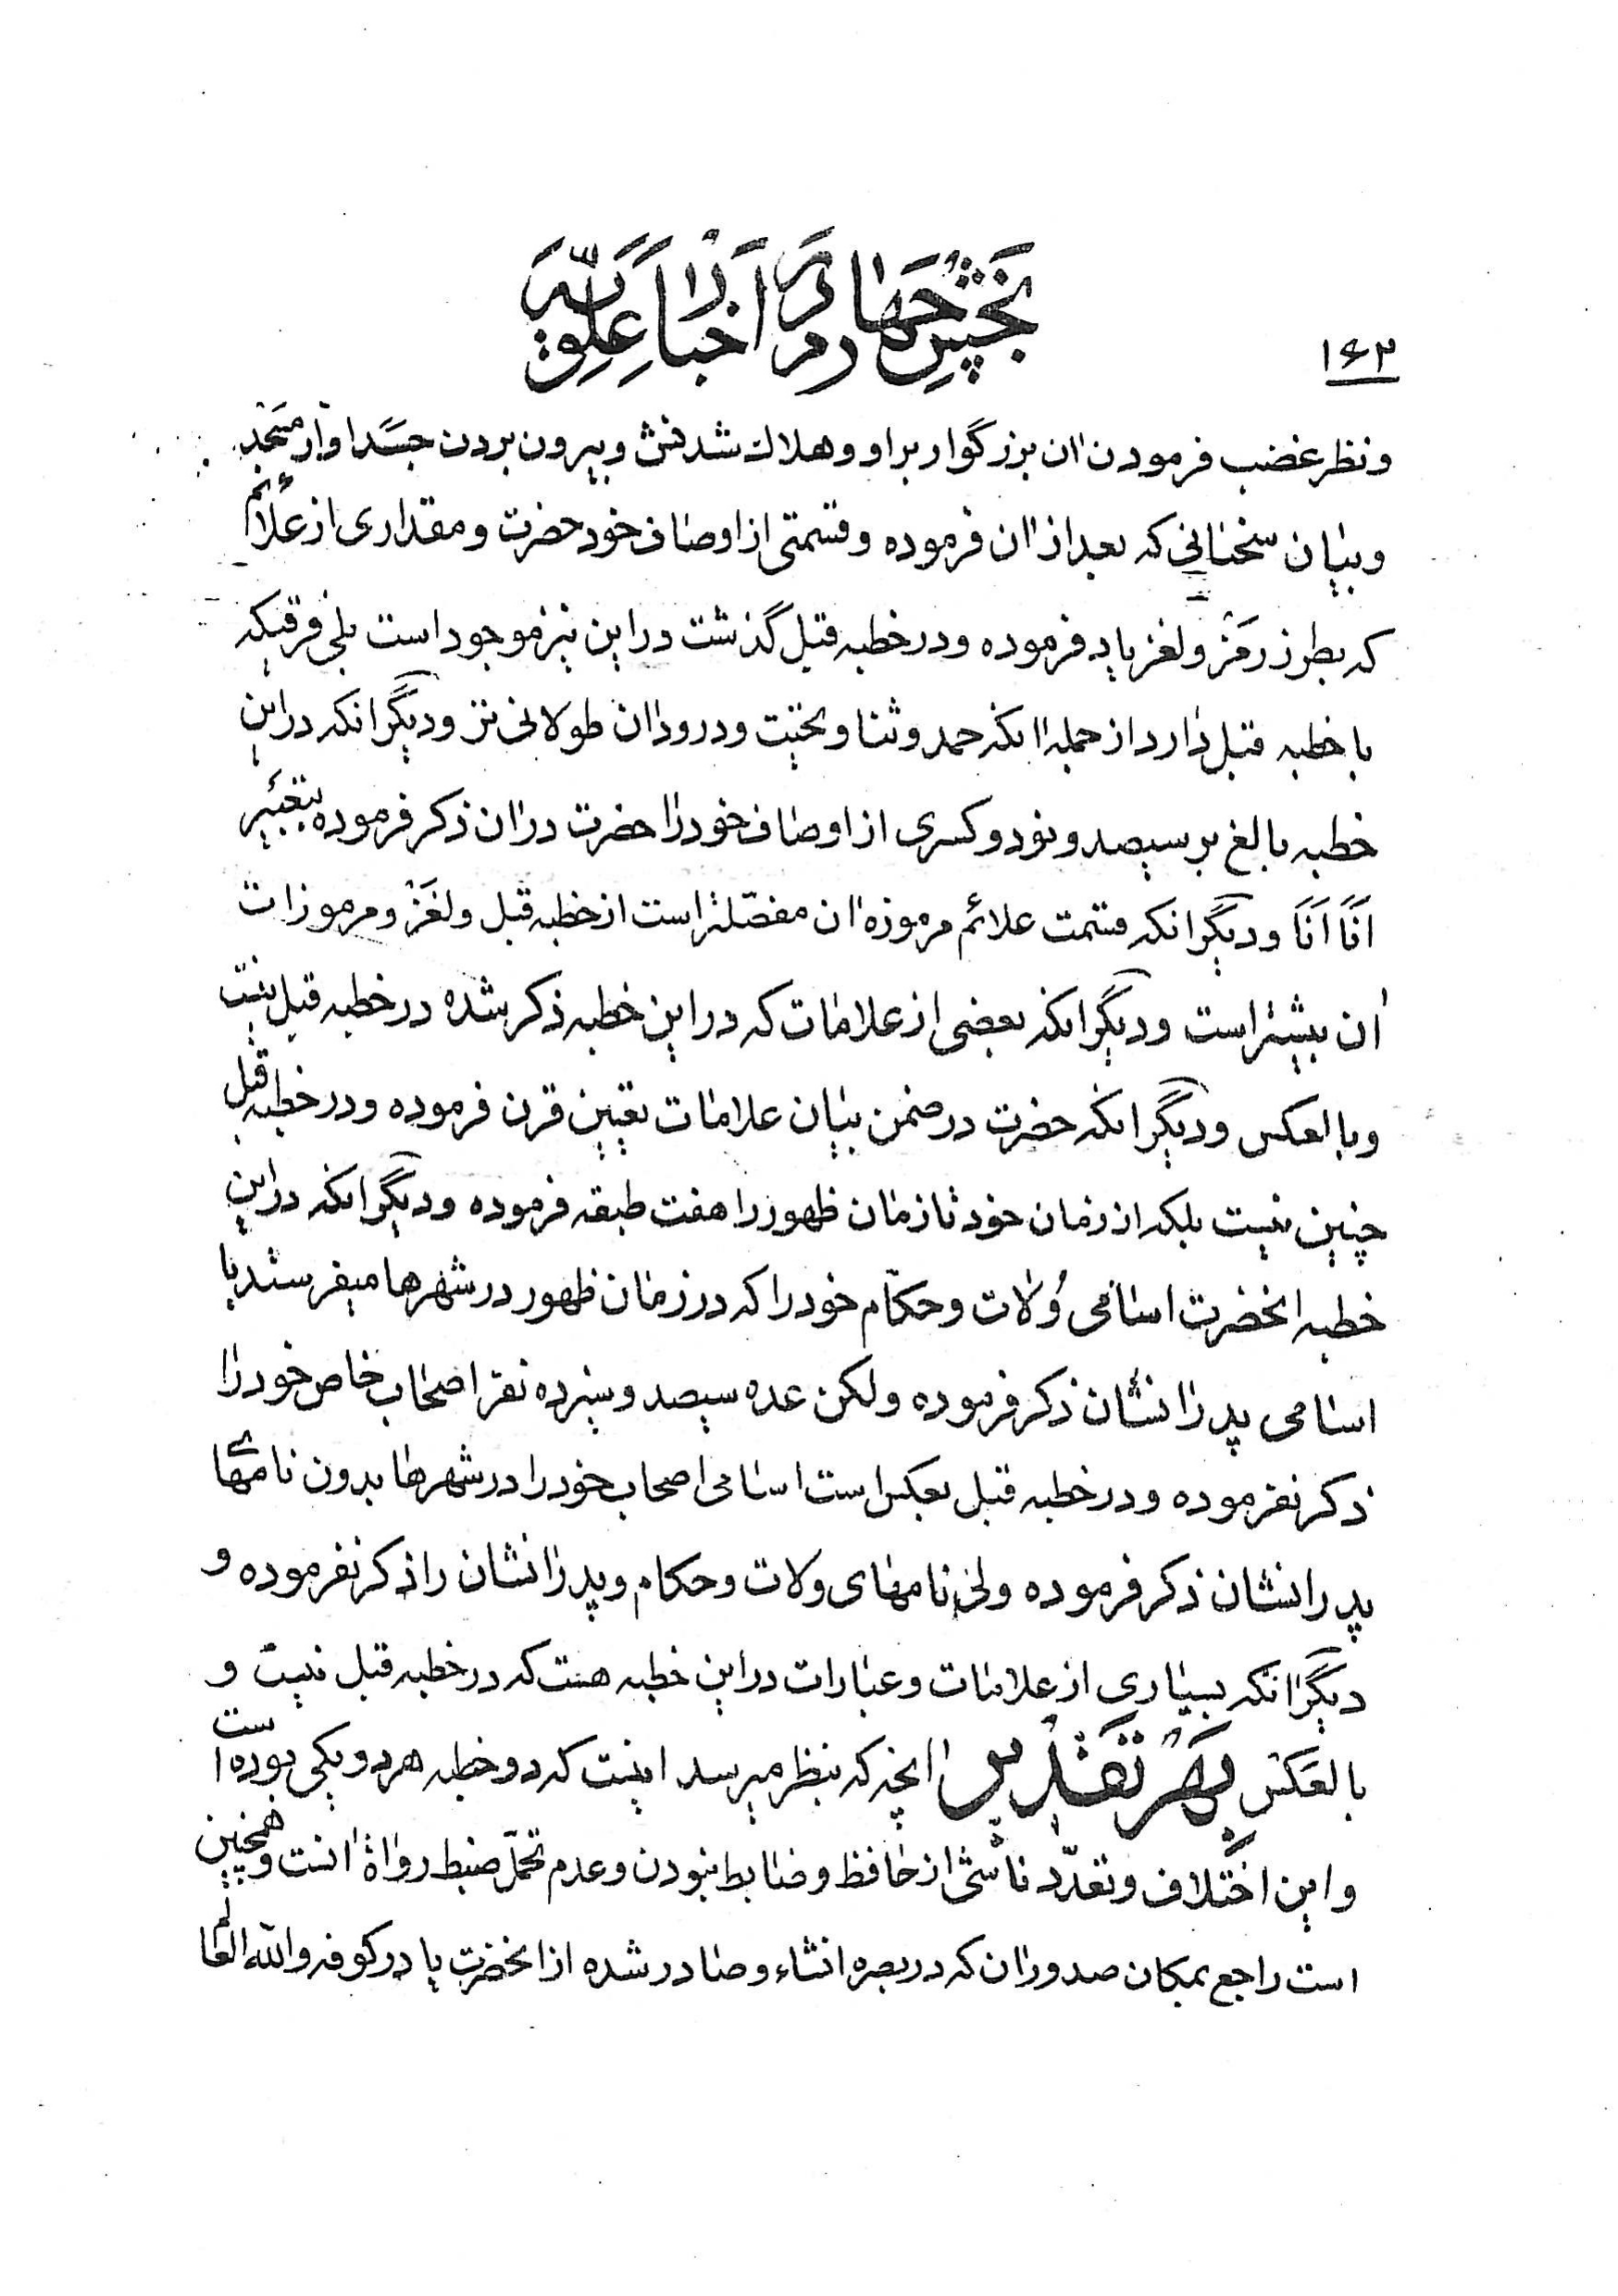 بخش چهارم در اخبار علویه
۱۶۲
و نظر غضب فرمودن ان بزرگوار بر او و هلاك شدنش و بیرون بردن جسد او از مسجد
و بیان سخنانی که بعد از ان فرموده و قسمتی از اوصاف خود حضرت و مقداری از علائم
که بطرز رمز و لغز یاد فرموده و در خطبه قبل گذشت در این نیز موجود است بلی فرقیکه
با خطبه قبل دارد از جمله انکه حمد و ثنا و تحیّت و درود ان طولانی تر و دیگر انکه در این
خطبه بالغ بر سیصد و نود و کسری از اوصاف خود را حضرت در ان ذکر فرموده بتعبیر
اَنَا اَنَا و دیگر انکه قسمت علائم مرموزه ان مفصّلتر است از خطبه قبل و لغَز و مرموزات
ان بیشتر است و دیگر انکه بعضی از علامات که در این خطبه ذکر شده در خطبه قبل نیست
و بالعکس و دیگر انکه حضرت در ضمن بیان علامات تعیین قرن فرموده و در خطبه قبل
چنین نیست بلکه از زمان خود تا زمان ظهور را هفت طبقه فرموده و دیگر انکه در این
خطبه انحضرت اسامی وُلات و حکّام خود را که در زمان ظهور در شهرها میفرستد با
اسامی پدرانشان ذکر فرموده ولکن عده سیصد و سیزده نفر اصحاب خاص خود را
ذکر نفرموده و در خطبه قبل بعکس است اسامی اصحاب خود را در شهرها بدون نامهای
پدرانشان ذکر فرموده ولی نامهای ولات و حکام و پدرانشان را ذکر نفرموده و
دیگر انکه بسیاری از علامات و عبارات در این خطبه هست که در خطبه قبل نیست و
بالعکس بهر تقدیر انچه که بنظر میرسد اینست که دو خطبه هر دو یکی بوده است
و این اختلاف و تعدّد ناشی از حافظ و ضابط نبودن و عدم تحمّل ضبط رواة انست و همچنین
است راجع بمکان صدور ان که در بصره انشاء و صادر شده از انحضرت یا در کوفه و الله العالم